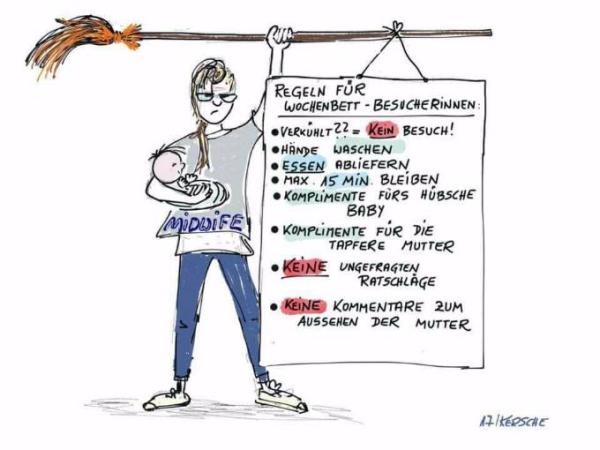 MIDWIFE
REGELN FÜR
WOCHENBETT - BESUCHERINNEN:
• VERKÜHLT ?? = KEIN BESUCH!
• HÄNDE WASCHEN
• ESSEN ABLIEFERN
• MAX. 15 MIN. BLEIBEN
• KOMPLIMENTE FÜRS HÜBSCHE
BABY
• KOMPLIMENTE FÜR DIE
TAPFERE MUTTER
• KEINE UNGEFRAGTEN
RATSCHLÄGE
• KEINE KOMMENTARE ZUM
AUSSEHEN DER MUTTER
17/KERSCHE